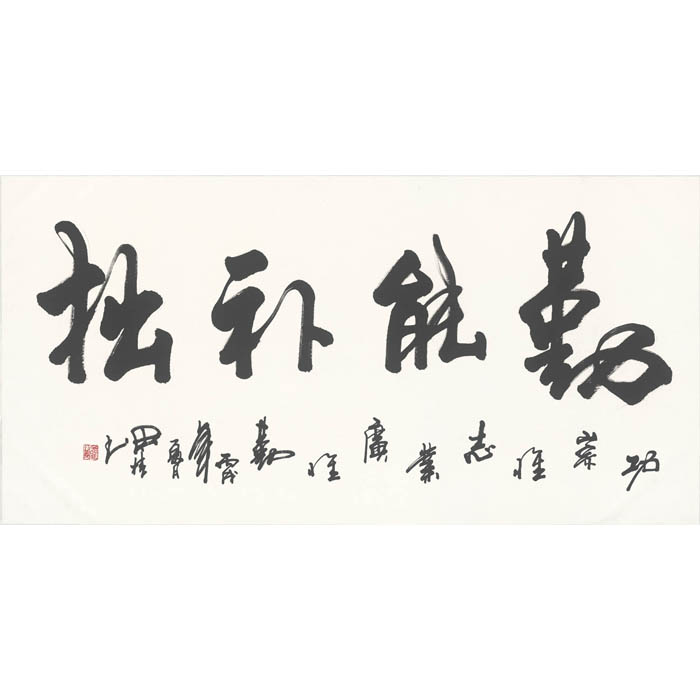 勤能补拙
功崇惟志業廣惟勤